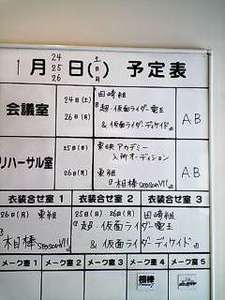 24 土
1月25日(日)予定表
26 月
会議室
24日(土) 田﨑組
『超・仮面ライダー電王
26日(月) & 仮面ライダーディケイド』
AB
リハーサル室
25日(日) 東映アカデミー
入所オーディション
26日(月) 東組
『相棒 season VII』
AB
衣装合せ室 1 衣装合せ室 2 衣装合せ室 3
26日(月) 東組
『相棒 season VII』
25日(日) 26日(月) 田﨑組
『超・仮面ライダー電王
& 仮面ライダーディケイド』
メーク室 1 メーク室 2 メーク室 3 メーク室 4 メーク室 5
相棒